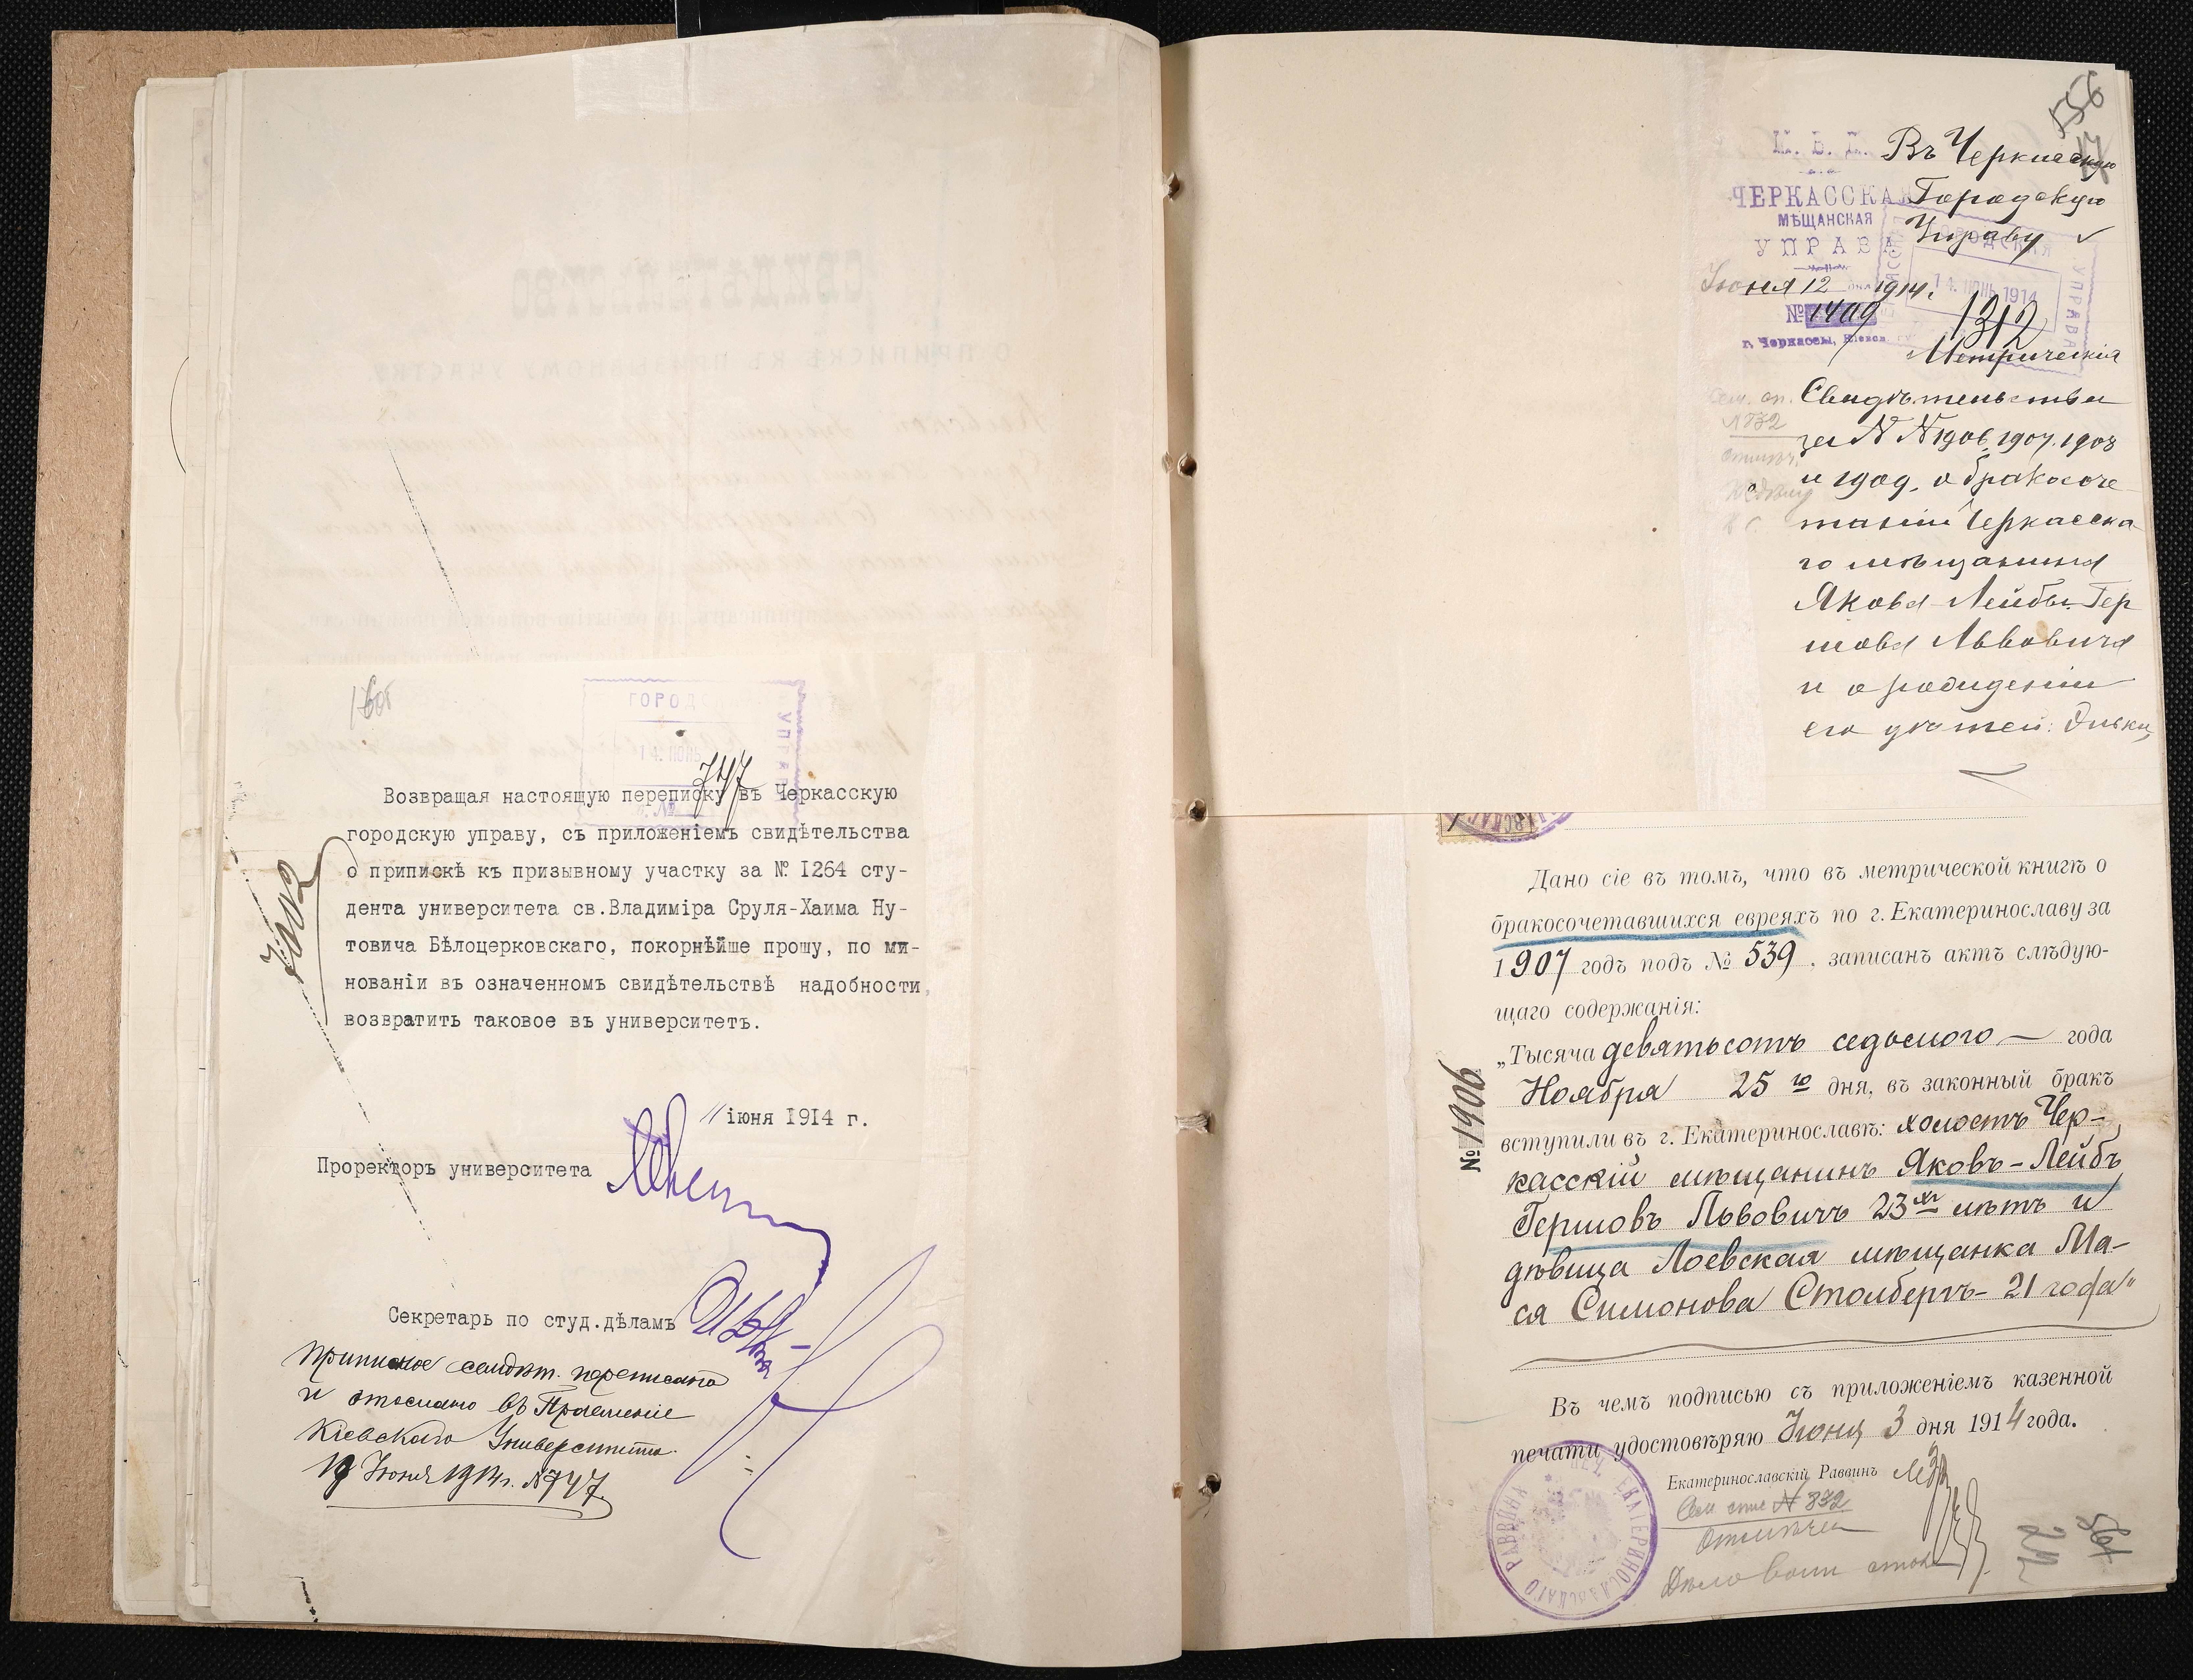 ГОРОДС
УПРАВА
14. ІЮНЬ
747
Возвращая настоящую переписку въ Черкасскую
городскую управу, съ приложеніемъ свидѣтельства
о припискѣ къ призывному участку за № I264 сту-
дента университета св.Владиміра Сруля-Хаима Ну-
товича Бѣлоцерковскаго, покорнѣйше прошу, по ми-
нованіи въ означенномъ свидѣтельствѣ надобности,
возвратить таковое въ университетъ.
11 іюня 1914 г.
Проректоръ университета
Секретарь по студ.дѣламъ
Приписное свидѣт. переписано
и отослано въ Правленіе
Кіевскаго Университета
19 Іюня 1914 г. №747.
556
М. В. Д.
ЧЕРКАССКАЯ
МѢЩАНСКАЯ
УПРАВА
Іюня 12 1914 г.
№ 1409
г. Черкассы, Кіевск. губ.
Въ Черкасскую
Городскую
Управу
14. ІЮНЬ 1914
1312
УПРАВА
Метрическія
Свидѣтельства
за N N 1906, 1907, 1908
и 1909, о бракосоче
таніи Черкасска
го мѣщанина
Якова-Лейбы Гер
шова Львовича
и о рожденіи
его дѣтей:
Дано сіе въ томъ, что въ метрической книгѣ о
бракосочетавшихся евреяхъ по г. Екатеринославу за
1907 годъ подъ № 539, записанъ актъ слѣдую-
щаго содержанія:
„Тысяча девятьсотъ седьмого — года
Ноября 25го дня, въ законный бракъ
вступили въ г. Екатеринославѣ: холостъ Чер-
касскій мѣщанинъ Яковъ-Лейбъ
Гершовъ Львовичъ 23хъ лѣтъ и
дѣвица Лоевская мѣщанка Ма-
ся Симонова Столберъ- 21 года"
№ 1906
Въ чемъ подписью съ приложеніемъ казенной
печати удостовѣряю Іюня 3 дня 1914 года.
Екатеринославскій Раввинъ